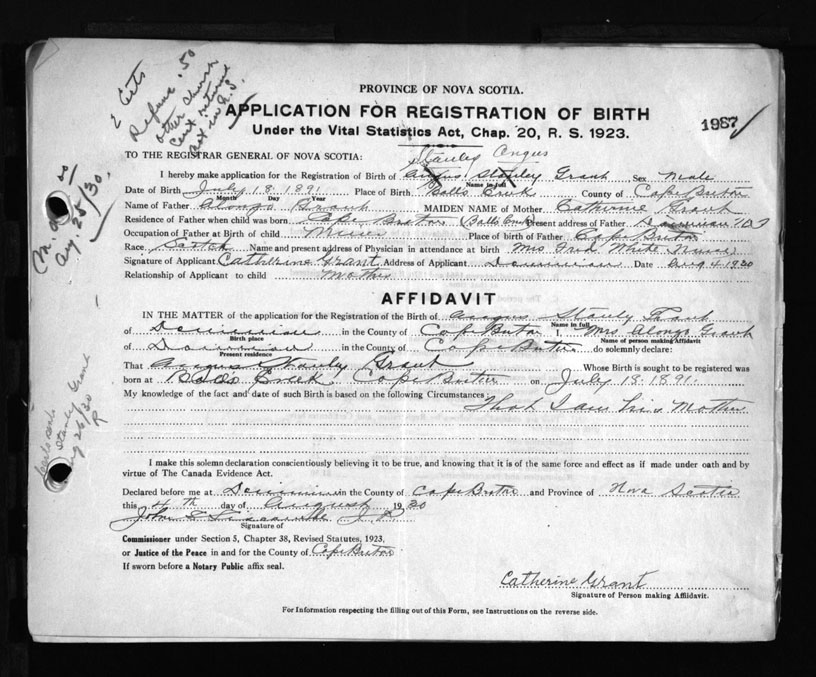 2 Certs
Refund .50
other
act in N.S.
PROVINCE OF NOVA SCOTIA.
APPLICATION FOR REGISTRATION OF BIRTH
Under the Vital Statistics Act, Chap. 20, R. S. 1923.
1987
Stanley Angus
TO THE REGISTRAR GENERAL OF NOVA SCOTIA:
I hereby make application for the Registration of Birth of Angus Stanley Grant Sex Male
Name in full
Date of Birth July 18 1891 Place of Birth Balls Creek County of Cape Breton
Month Day Year
Name of Father Alonzo Grant MAIDEN NAME of Mother Catherine Grant
Residence of Father when child was born Cape Breton (Balls Creek) Present address of Father Dominion
Occupation of Father at Birth of child Miner Place of birth of Father Cape Breton
Race Scotch Name and present address of Physician in attendance at birth Mrs Nurse
Signature of Applicant Catherine Grant Address of Applicant Dominion Date Aug 4 1930
Relationship of Applicant to child Mother
Aug 25/30.
AFFIDAVIT
IN THE MATTER of the application for the Registration of the Birth of Angus Stanly Grant
Name in full
of Dominion in the County of Cape Breton I, Mrs Alonzo Grant
Birth place Name of person making Affidavit
of Dominion in the County of Cape Breton do solemnly declare:
Present residence
That Angus Stanly Grant Whose Birth is sought to be registered was
born at Balls Creek Cape Breton on July 18 1891.
My knowledge of the fact and date of such Birth is based on the following Circumstances: That I am his Mother
Stanley Grant
Aug 26/30
R
I make this solemn declaration conscientiously believing it to be true, and knowing that it is of the same force and effect as if made under oath and by
virtue of The Canada Evidence Act.
Declared before me at Dominion in the County of Cape Breton and Province of Nova Scotia
this 4th day of August 1930
John J P
Signature of
Commissioner under Section 5, Chapter 38, Revised Statutes, 1923,
or Justice of the Peace in and for the County of Cape Breton
If sworn before a Notary Public affix seal.
Catherine Grant
Signature of Person making Affidavit.
For Information respecting the filling out of this Form, see Instructions on the reverse side.